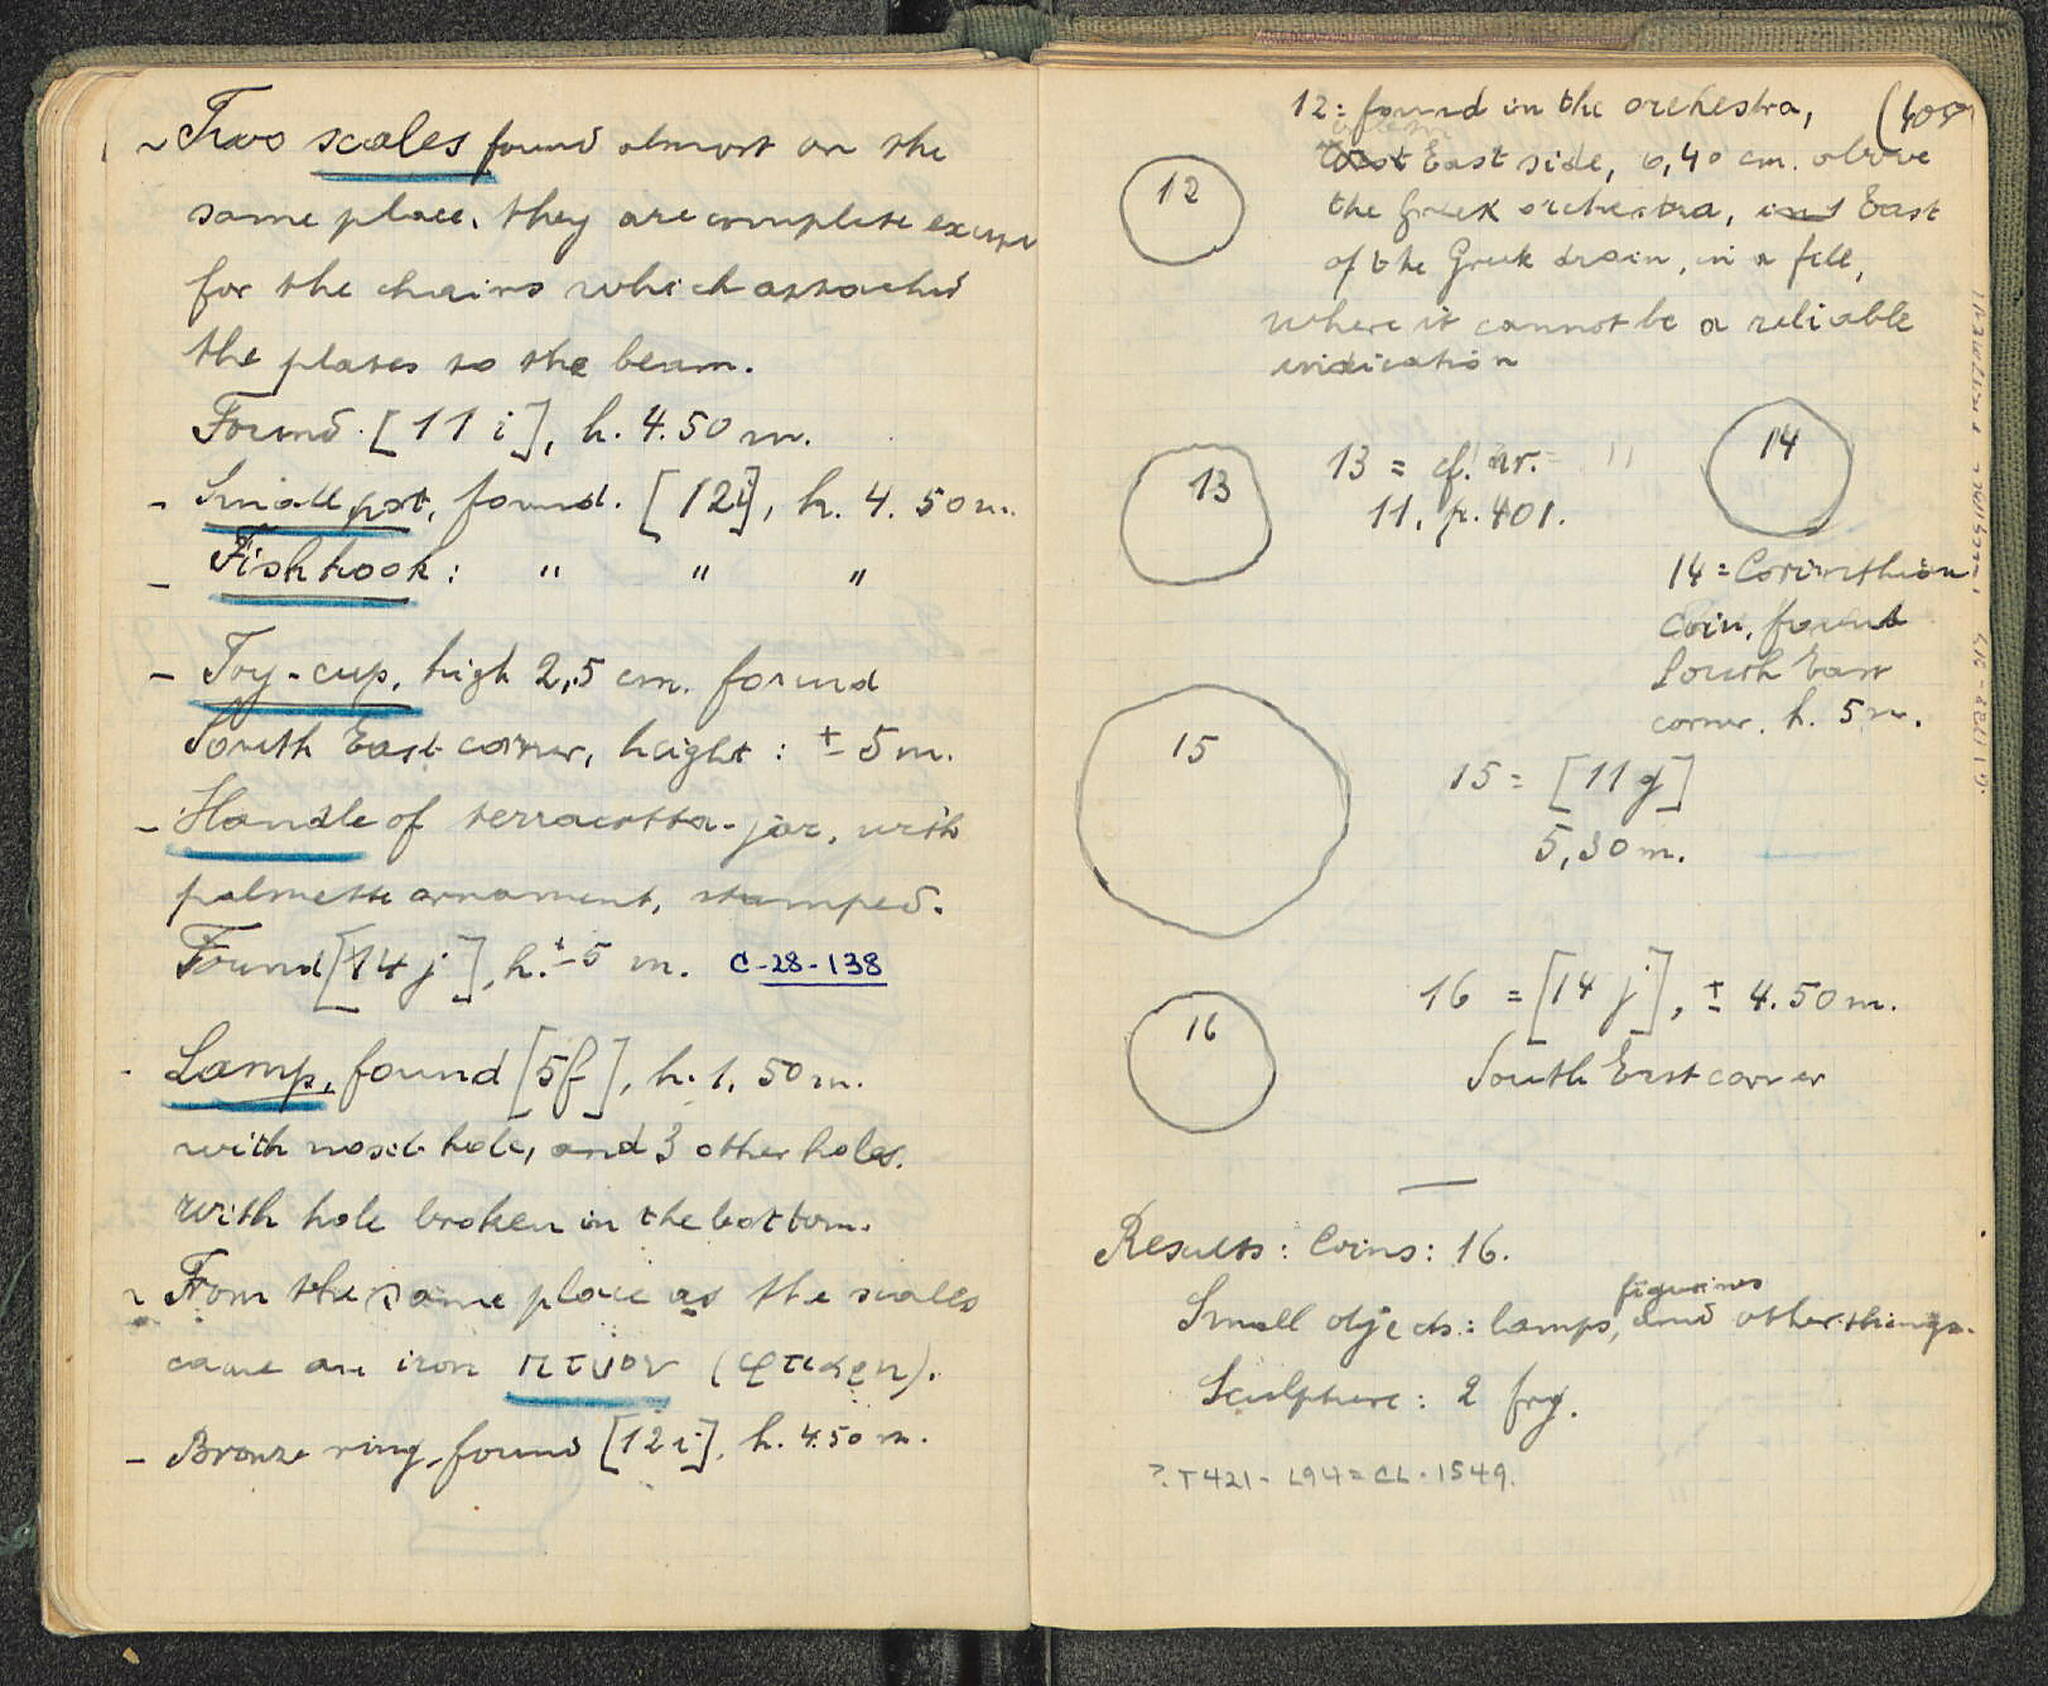 ~ Two scales found almost on the
same place. they are complete except
for the chains which attached
the plates to the beam.
Found. [11 i], h. 4.50 m.
- Small pot, found. [12 i], h. 4.50 m.
- Fishhook: " " "
- Toy-cup, high 2,5 cm. found
South East corner, height: ± 5 m.
- Handle of terracotta-jar, with
palmette ornament, stamped.
Found [14 j], h. ± 5 m. C-28-138
- Lamp, found [5f], h. 1,50 m.
with hole, and 3 other holes.
With hole broken in the bottom.
~ From the same place as the scales
came an iron πτυον (φτιαρη).
- Bronze ring, found [12 i], h. 4.50 m.
12: found in the orchestra,
East side, 0,40 cm. above
12
the Greek orchestra, East
of the Greek drain, in a fill,
where it cannot be a reliable
indication
13
13 = cf. nr.
11, p. 401.
14
14 = Corinthian
Coin, found
South East
corner. h. 5 m.
15
15 = [11 g]
5,30 m.
16
16 = [14 j], ± 4.50 m.
South East corner
Results: Coins: 16.
Small objects: lamps, figurines and other things.
Sculpture: 2 frg.
?. T421 - L94 = CL. 1549.